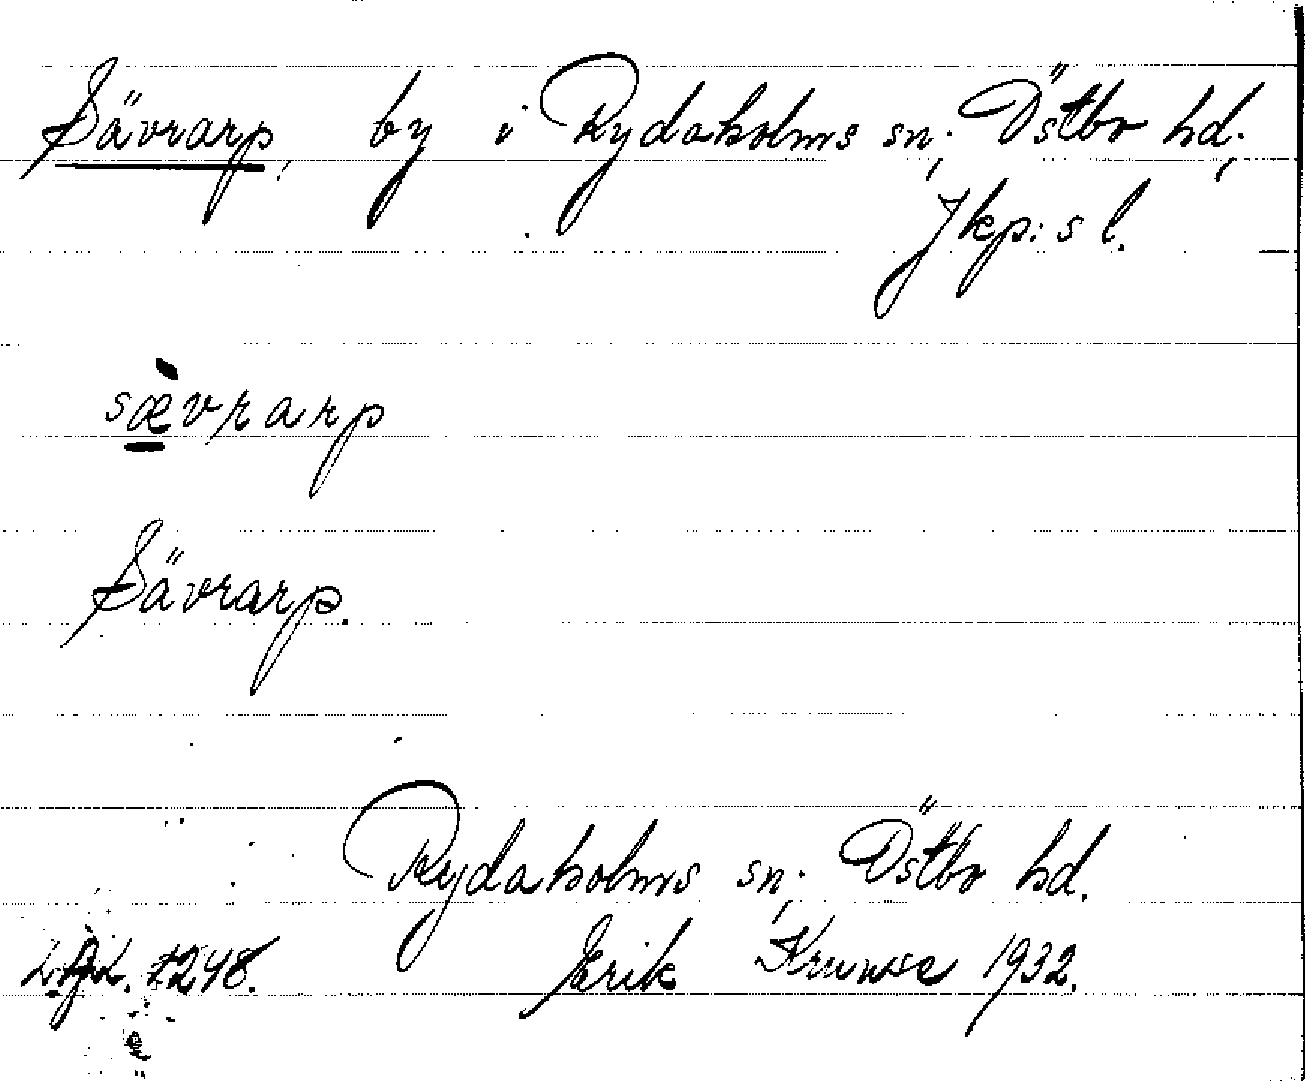 Sävrarp, by i Rydaholms sn; Östbo hd;
Jkp:s l.
sæ̠̀vrarp
Sävrarp.
Rydaholms sn; Östbo hd.
1248. Erik Krunse 1932.